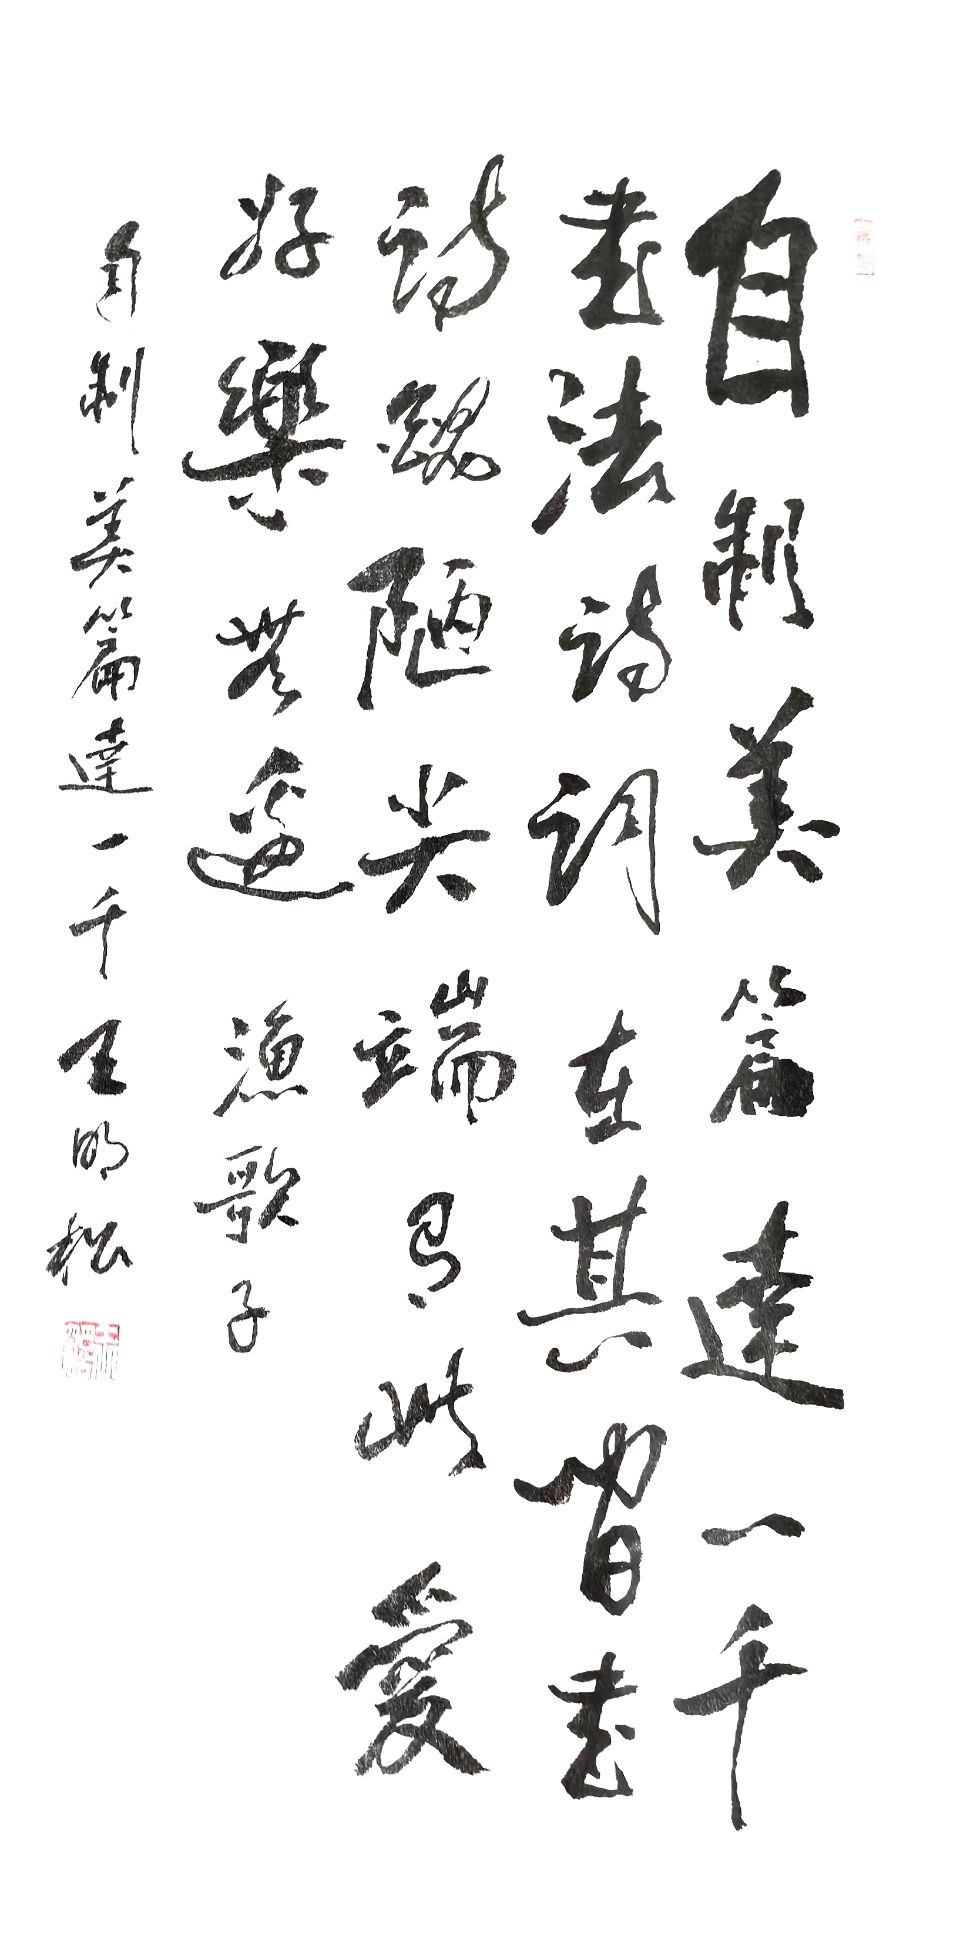 自制美篇達一千
書法詩詞在其間書
詩陋尖端有此愛
好樂無邊 漁歌子
自制美篇達一千王明松